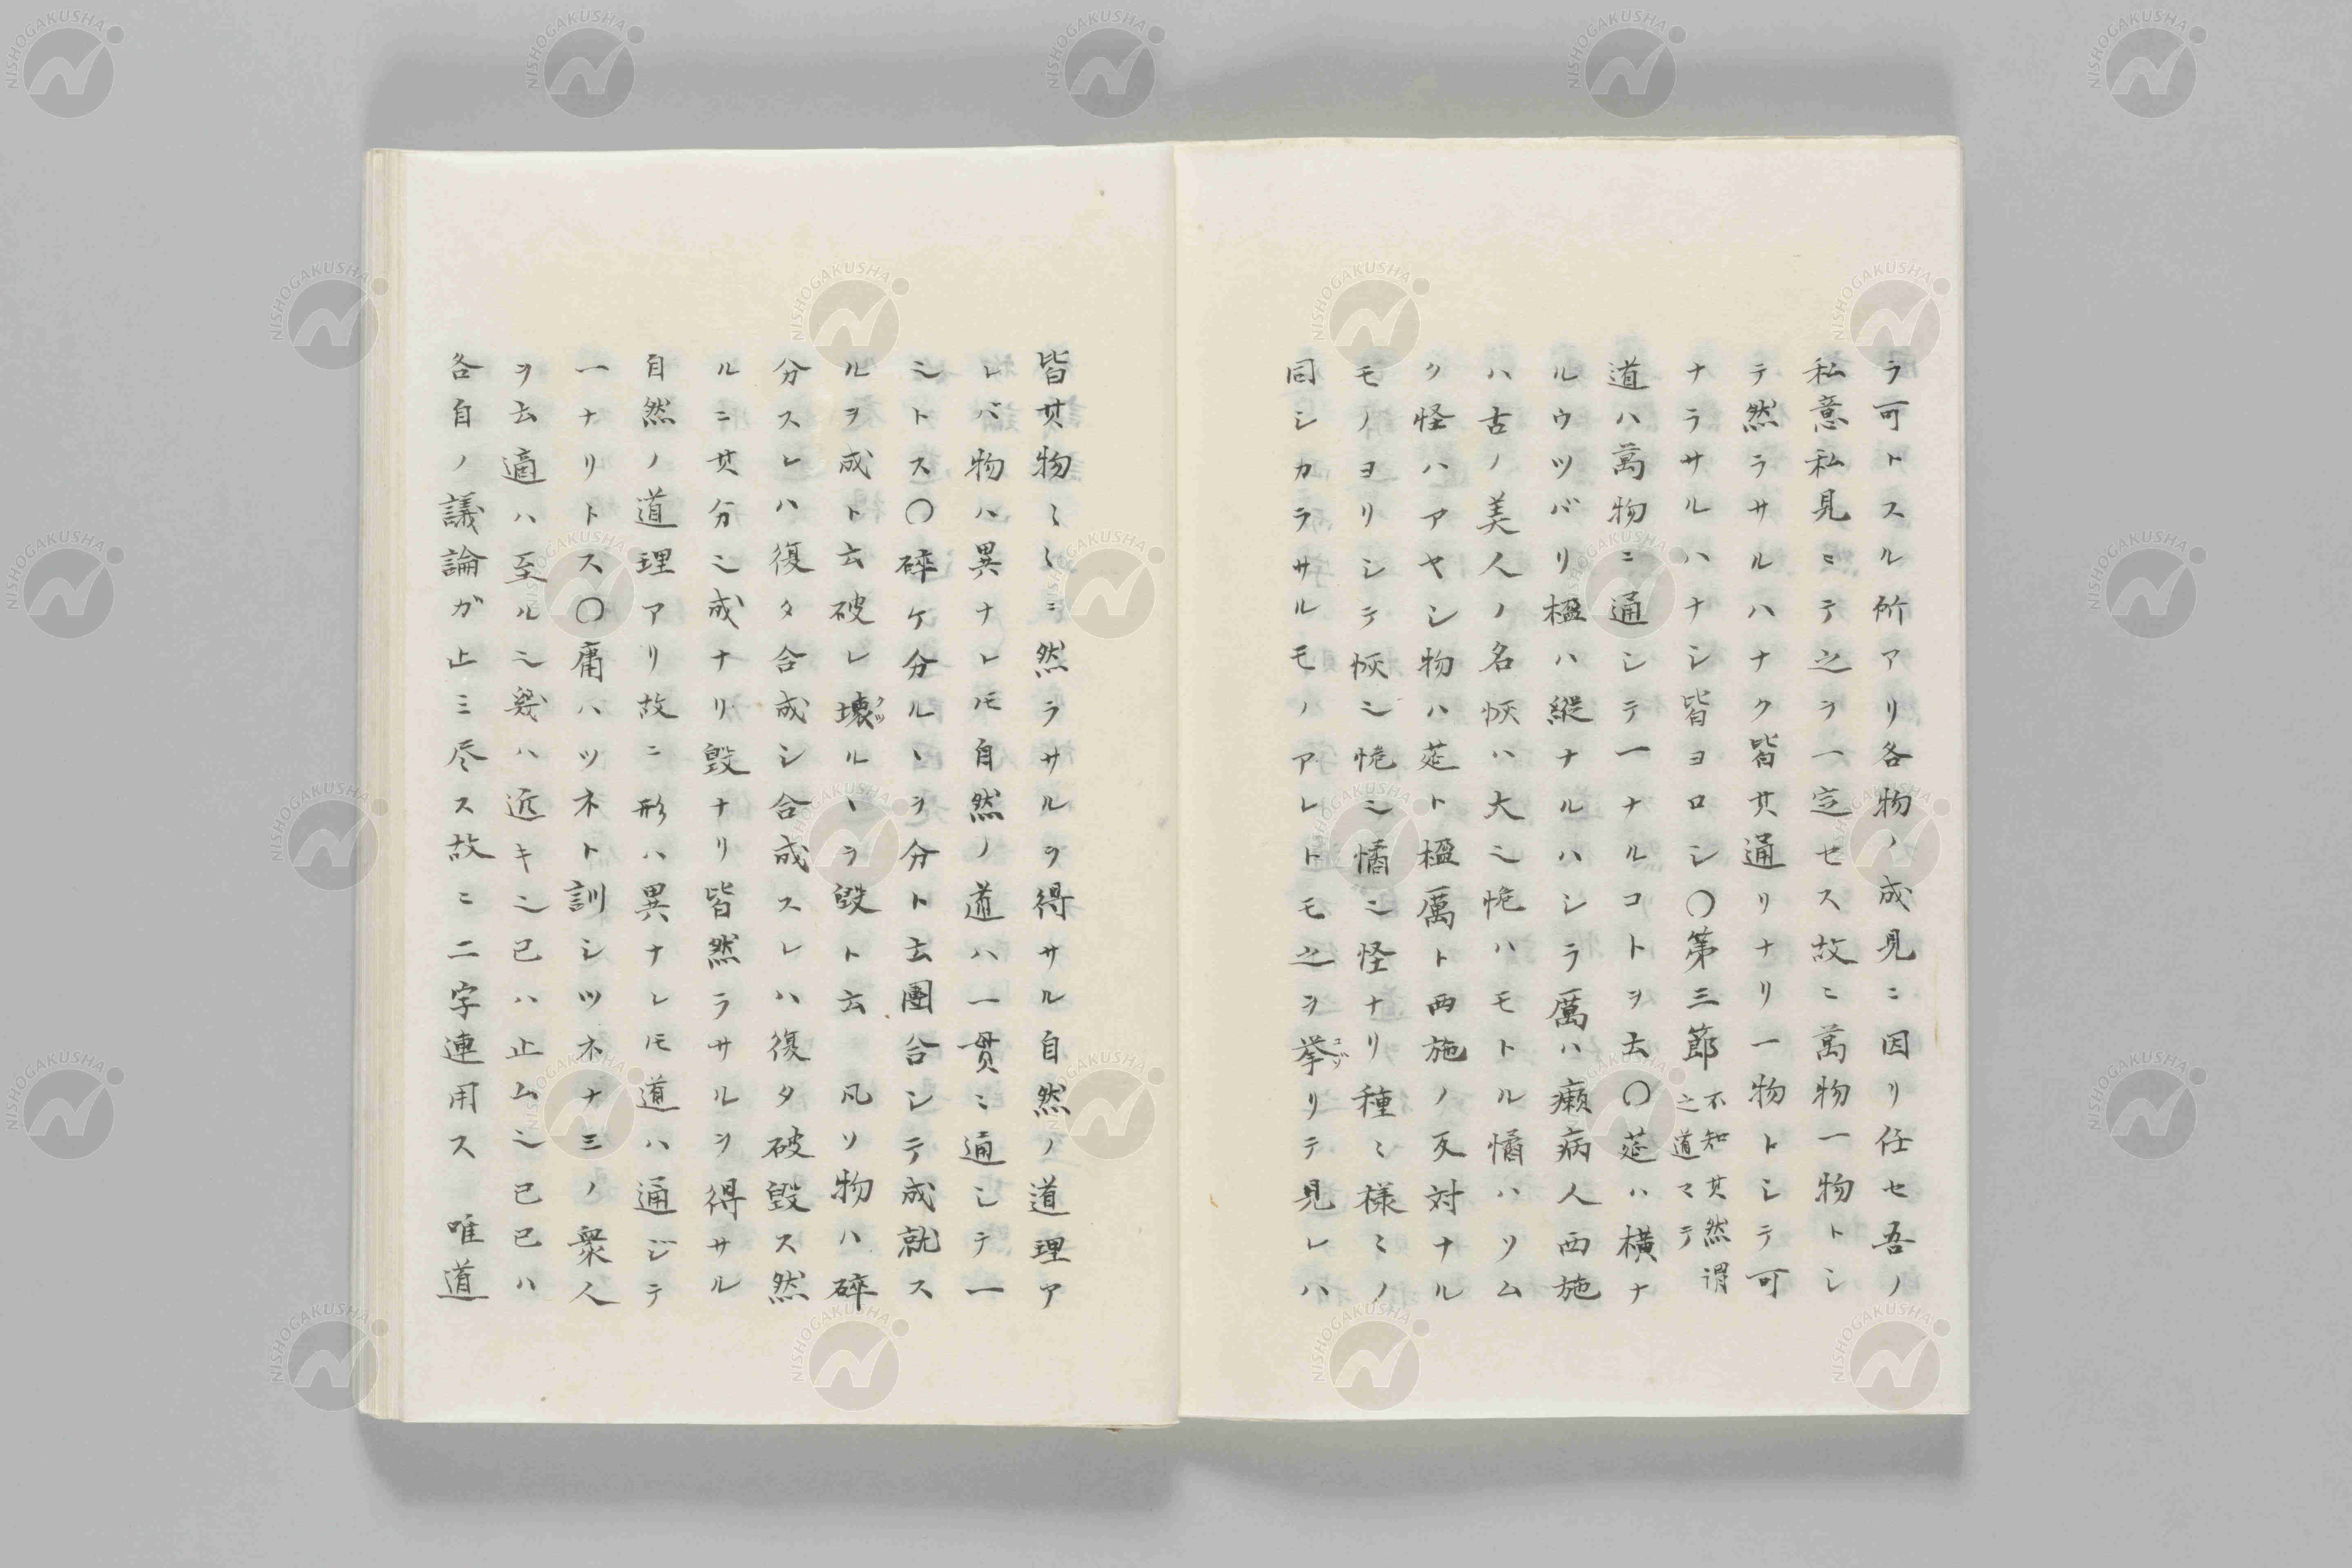 ラ可トスル所アリ各物ノ成見ニ因リ任セ吾ノ
私意私見ニテ之ヲ一定セス故ニ萬物一物トシ
テ然ラサルハナク皆其通リナリ一物トシテ可
ナラサルハナシ皆ヨロシ〇第三節不知其然謂之道マテ
道ハ萬物ニ通シテ一ナルコトヲ云〇莚ハ横ナ
ルウツバリ楹ハ縦ナルハシラ厲ハ癩病人西施
ハ古ノ美人ノ名恢ハ大ニ恑ハモトル憰ハソム
ク怪ハアヤシ物ハ莚ト楹厲ト西施ノ反対ナル
モノヨリシテ恢ニ恑ニ憰ニ怪ナリ種ミ様ミノ
同シカラサルモノアレトモ之ヲ挙コゾリテ見レハ
皆其物〻〻ニ然ラサルヲ得サル自然ノ道理ア
レバ物ハ異ナレ𪜈自然ノ道ハ一貫ニ通シテ一
ニトス〇碎ケ分ルヽヲ分ト云團合シテ成就ス
ルヲ成ト云破レ壊クツルヽヲ毀ト云 凡ソ物ハ碎
分スレハ復タ合成シ合成スレハ復タ破毀ス然
ルニ其分ニ成ナリ毀ナリ皆然ラサルヲ得サル
自然ノ道理アリ故ニ形ハ異ナレ𪜈道ハ通ジテ
一ナリトス〇庸ハツネト訓シツネナミノ衆人
ヲ云適ハ至ルニ幾ハ近キニ已ハ止ムニ已已ハ
各自ノ議論ガ止ミ尽ス故ニ二字連用ス 唯道
NISHOGAKUSHA